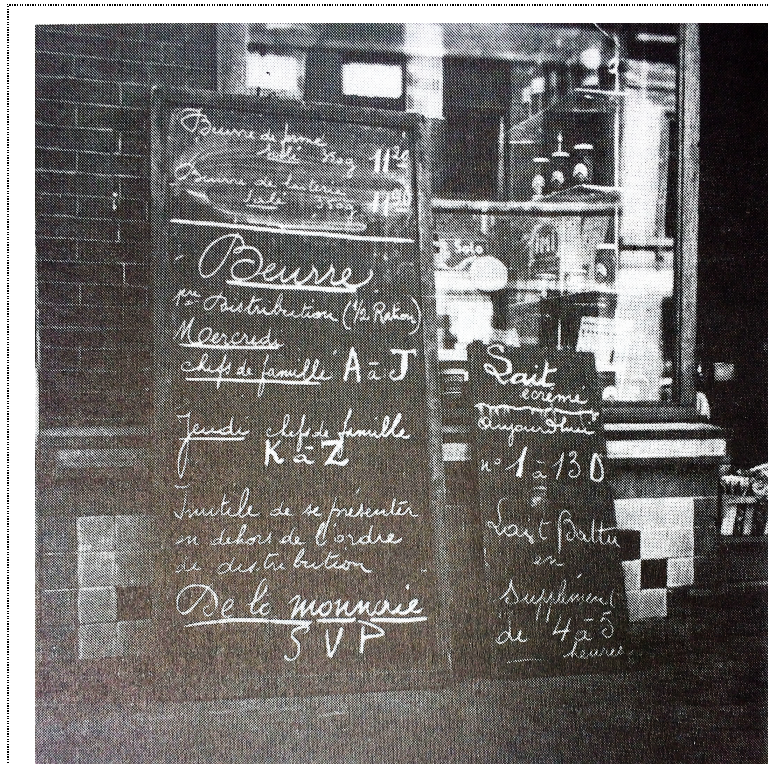 Beurre de ferme
salé 350g 11 20
Beurre de laiterie
salé 350g 11 90
Beurre
1ère Distribution (1/2 Ration)
Mercredi
chefs de famille A à J
Jeudi chefs de famille
K à Z
Inutile de se présenter
en dehors de l'ordre
de distribution
De la monnaie
S V P
Solo
Lait
écrémé
aujourd'hui
n° 1 à 130
Lait Battu
en
Supplément
de 4 à 5
heures